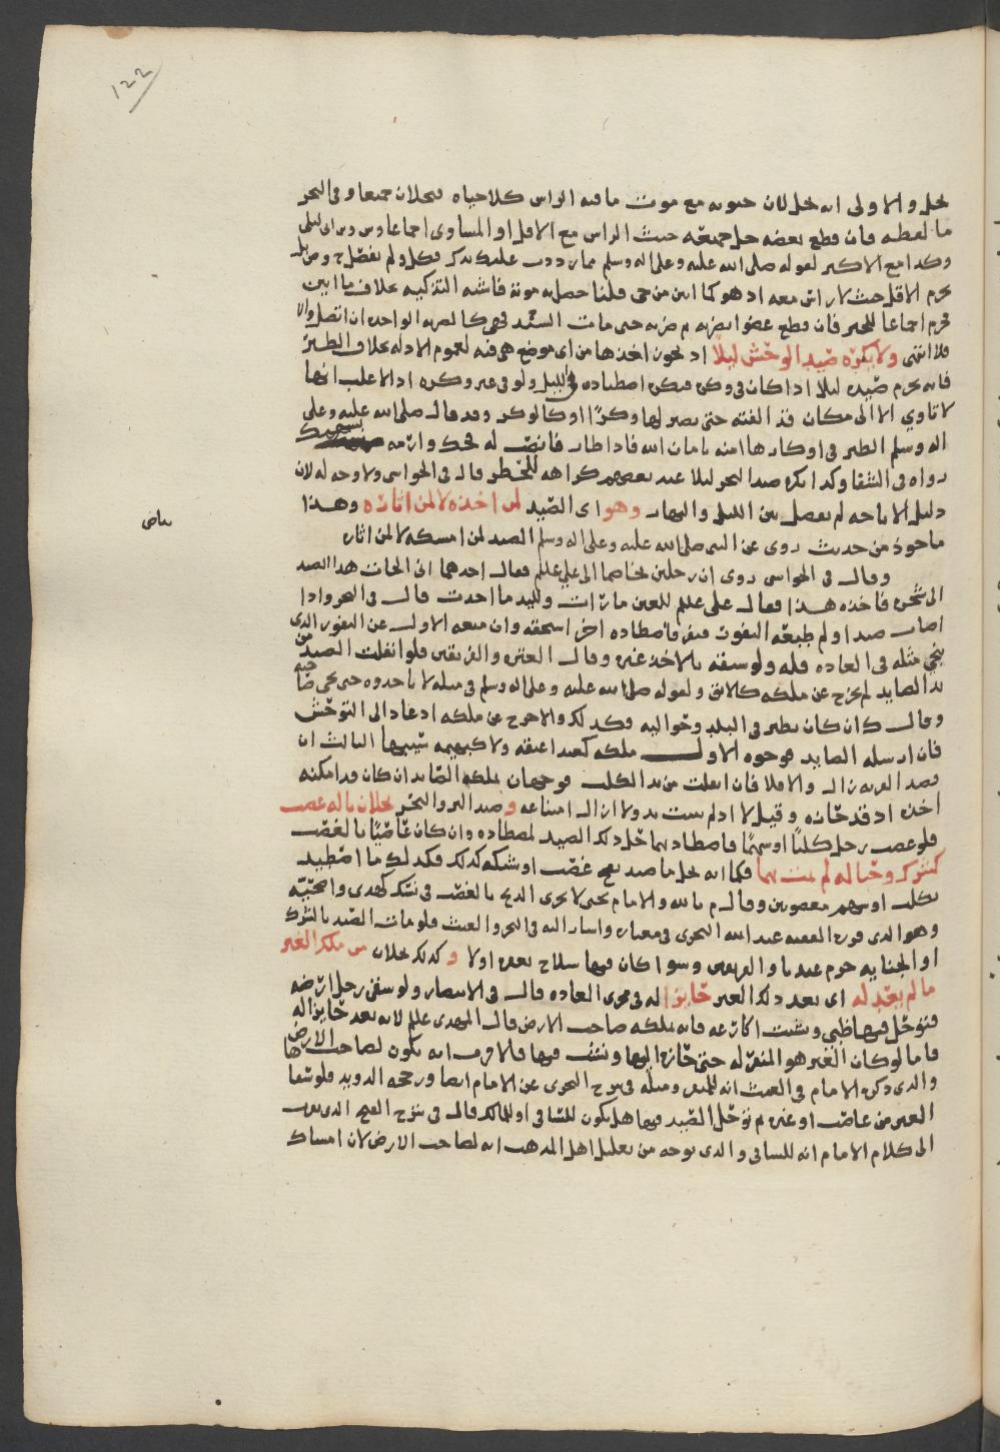 ١٢٢
يحل والاولى انه يحل لان حيوته مع موت ما فيه الراس كلا حياه فيحلان جميعا وفي البحر
ما لفظه فان قطع بعضه حل جميعه حيث الراس مع الاقل او المساوي اجماعا
وكذا مع الاكثر لقوله صلى الله عليه وعلى اله وسلم مما ردت عليك يدك فكل ولم يفصل
يحرم الاقل حيث الراس معه اذ هو كما ابين من حي قلنا حصل به موته فاشبه التذكيه بخلاف ما ابين
فحرم اجماعا للخبر فان قطع عضوا بضربه ثم ضربه حتى مات فهي كالضربه الواحده ان اتصل والا
فلا انتهى ولا يكره صيد الوحش ليلا اذ يجوز اخذها من اي موضع هي فيه لعموم الادله بخلاف الطير
فانه يحرم صيده ليلا اذا كان في وكره فيكره اصطياده في الليل ولو في غير وكره اذ الاغلب انها
لا تاوي الا الى مكان قد الفته حتى يصير لها وكرا او كالوكر وقد قال صلى الله عليه وعلى
اله وسلم الطير في اوكارها امنه بامان الله فاذا طار فانصب له فخك وارمه بسهمك
رواه في الشفا وكذا يكره صيد البحر ليلا عند بعضهم كراهه للخطر قال في الحواشي ولا وجه له لان
دليل الاباحه لم يفصل بين الليل والنهار وهو اي الصيد لمن اخذه لا لمن اثاره وهذا
بياض
ماخوذ من حديث روي عن النبي صلى الله عليه وعلى اله وسلم الصيد لمن امسكه لا لمن اثاره
وقال في الحواشي روي ان رجلين تخاصما الى علي علم فقال احدهما اني الجات هذا الصيد
الى شجره فاخذه هذا فقال علي علم للعين ما رات ولليد ما اخذت قال في البحر واذا
اصاب صيدا ولم طبعه النفوت فاصطاده اخر استحقه وان منعه الاول عن النفور الذي
ينجي مثله في العاده فله ولو سبقه بالاخذ غيره وقال العتره والفريقين فلو انفلت الصيد من
يد الصايد لم يخرج عن ملكه كالابق ولقوله صلى الله عليه وعلى اله وسلم في مثله لا ياخذوه حتى يجي صاحبه
وقال ك ان كان يطير في البلد وحواليه فكذلك والا خرج عن ملكه اذ عاد الى التوحش
فان ارسله الصايد فوجوه الاول ملكه كعبد اعتقه ولا كبهيمه سيبها الثالث ان
قصد القربه زال والا فلا فان انفلت من يد الكلب فوجهان يملكه الصايد ان كان قد امكنه
اخذه اذ قد حازه وقيل لا اذ لم يثبت يد ولا زال امتناعه وصيد البر والبحر يحلان باله غصب
فلو غصب رجل كلبا او سهما فاصطاد بهما حل ذلك الصيد لمصطاده وان كان عاصيا بالغصب
كشرك وحباله لم يثبت بهما فكما انه يحل ما صيد بفخ غصب او شبكه كذلك فكذلك ما اصطيد
بكلب او سهم مغصوبين وقال م بالله والامام يحيى لا يجزي الذبح بالغصب في نسك كهدي واضحيه
وهو الذي قرره الفقيه عبد الله النجري في معياره واشار اليه في البحر والغيث فلو مات الصيد بالشرك
او الجنايه حرم عندنا والفريقين وسوا كان فيها سلاح يعقره او لا وكذلك يحلان من ملك الغير
ما لم يعد له اي يعد ذلك الغير حايزا له في مجرى العاده قال في الانتصار ولو سقى رجل ارضه
فتوحل فيها ظبي ونشب اكارعه فانه يملكه صاحب الارض قال المهدي علم لانه يعد حايزا له
فاما لو كان الغير هو المنفر له حتى حازه اليها ونشب فيها فالاقرب انه يكون لصاحب الارض
والذي ذكره الامام في الغيث انه للمنفر ومثله في شرح النجري عن الامام ايضا ورجحه الدويد فلو سقاها
الغير من غاصب او غيره ثم توحل الصيد فيها هل يكون للساقي او للمالك قال في شرح الفتح الذي يقرب
الى كلام الامام انه للساقي والذي يوجد من تعليل اهل المذهب انه لصاحب الارض لان امساك